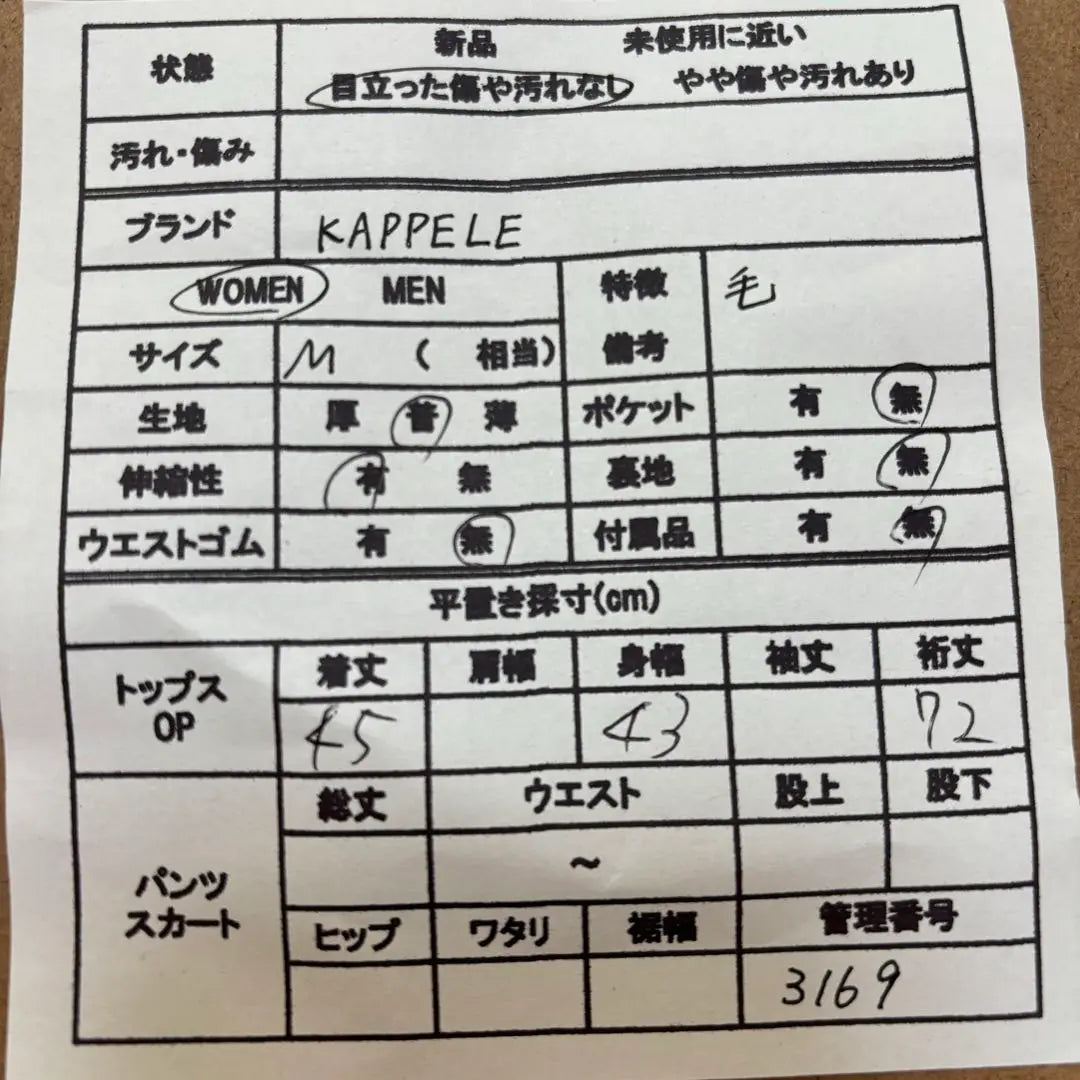 状態 新品 未使用に近い
目立った傷や汚れなし やや傷や汚れあり
汚れ・傷み
ブランド KAPPELE
WOMEN MEN 特徴 毛
サイズ M ( 相当) 備考
生地 厚 普 薄 ポケット 有 無
伸縮性 有 無 裏地 有 無
ウエストゴム 有 無 付属品 有 無
平置き採寸(cm)
トップス OP 着丈 肩幅 身幅 袖丈 裄丈
45 43 72
総丈 ウエスト 股上 股下
~
パンツ
スカート
ヒップ ワタリ 裾幅 管理番号
3169